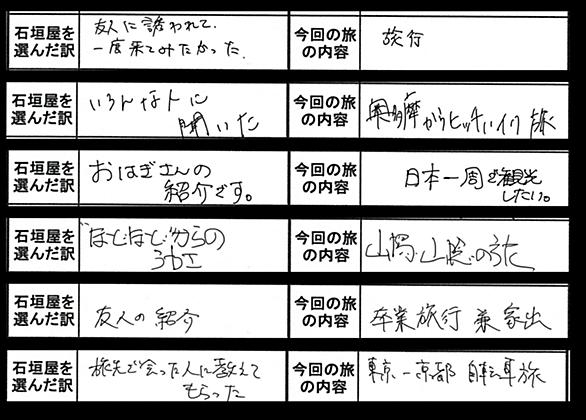 石垣屋を
選んだ訳
友人に誘われて、
一度来てみたかった.
今回の旅
の内容
旅行
石垣屋を
選んだ訳
いろんな人に
聞いた
今回の旅
の内容
奥多摩からヒッチハイク 旅
石垣屋を
選んだ訳
おはぎさんの
紹介です。
今回の旅
の内容
日本一周を観光
したい。
石垣屋を
選んだ訳
"ほどほど"からの
今回の旅
の内容
石垣屋を
選んだ訳
友人の紹介
今回の旅
の内容
卒業旅行 兼 家出
石垣屋を
選んだ訳
旅先で会った人に教えて
もらった
今回の旅
の内容
東京-京都 自転車旅